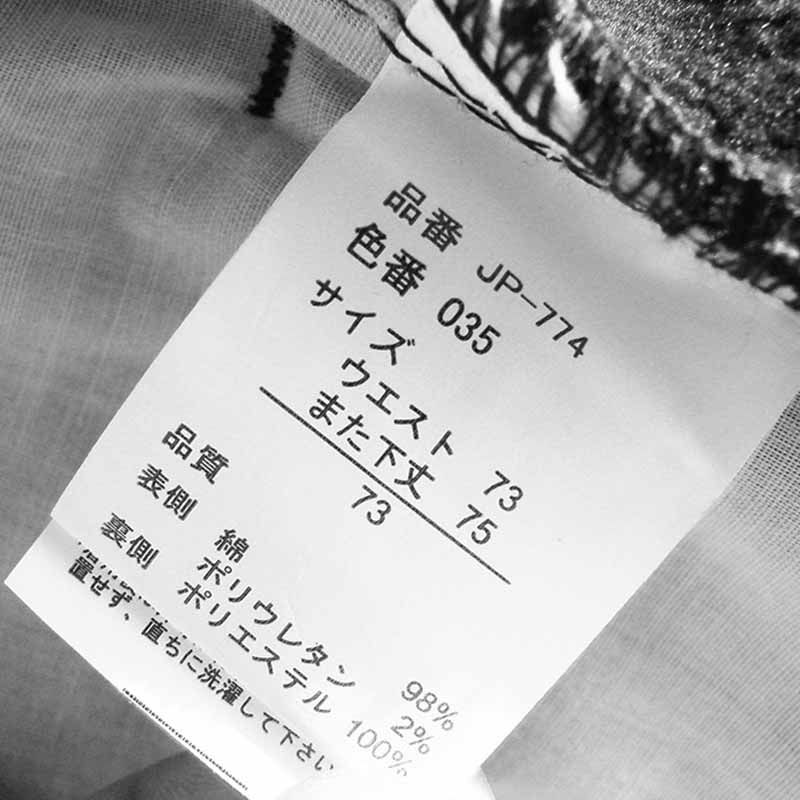 品番 JP-774
色番 035
サイズ
ウエスト 73
また下丈 75
73
品質
表側 綿 98%
ポリウレタン 2%
裏側 ポリエステル 100%
置せず、直ちに洗濯して下さい